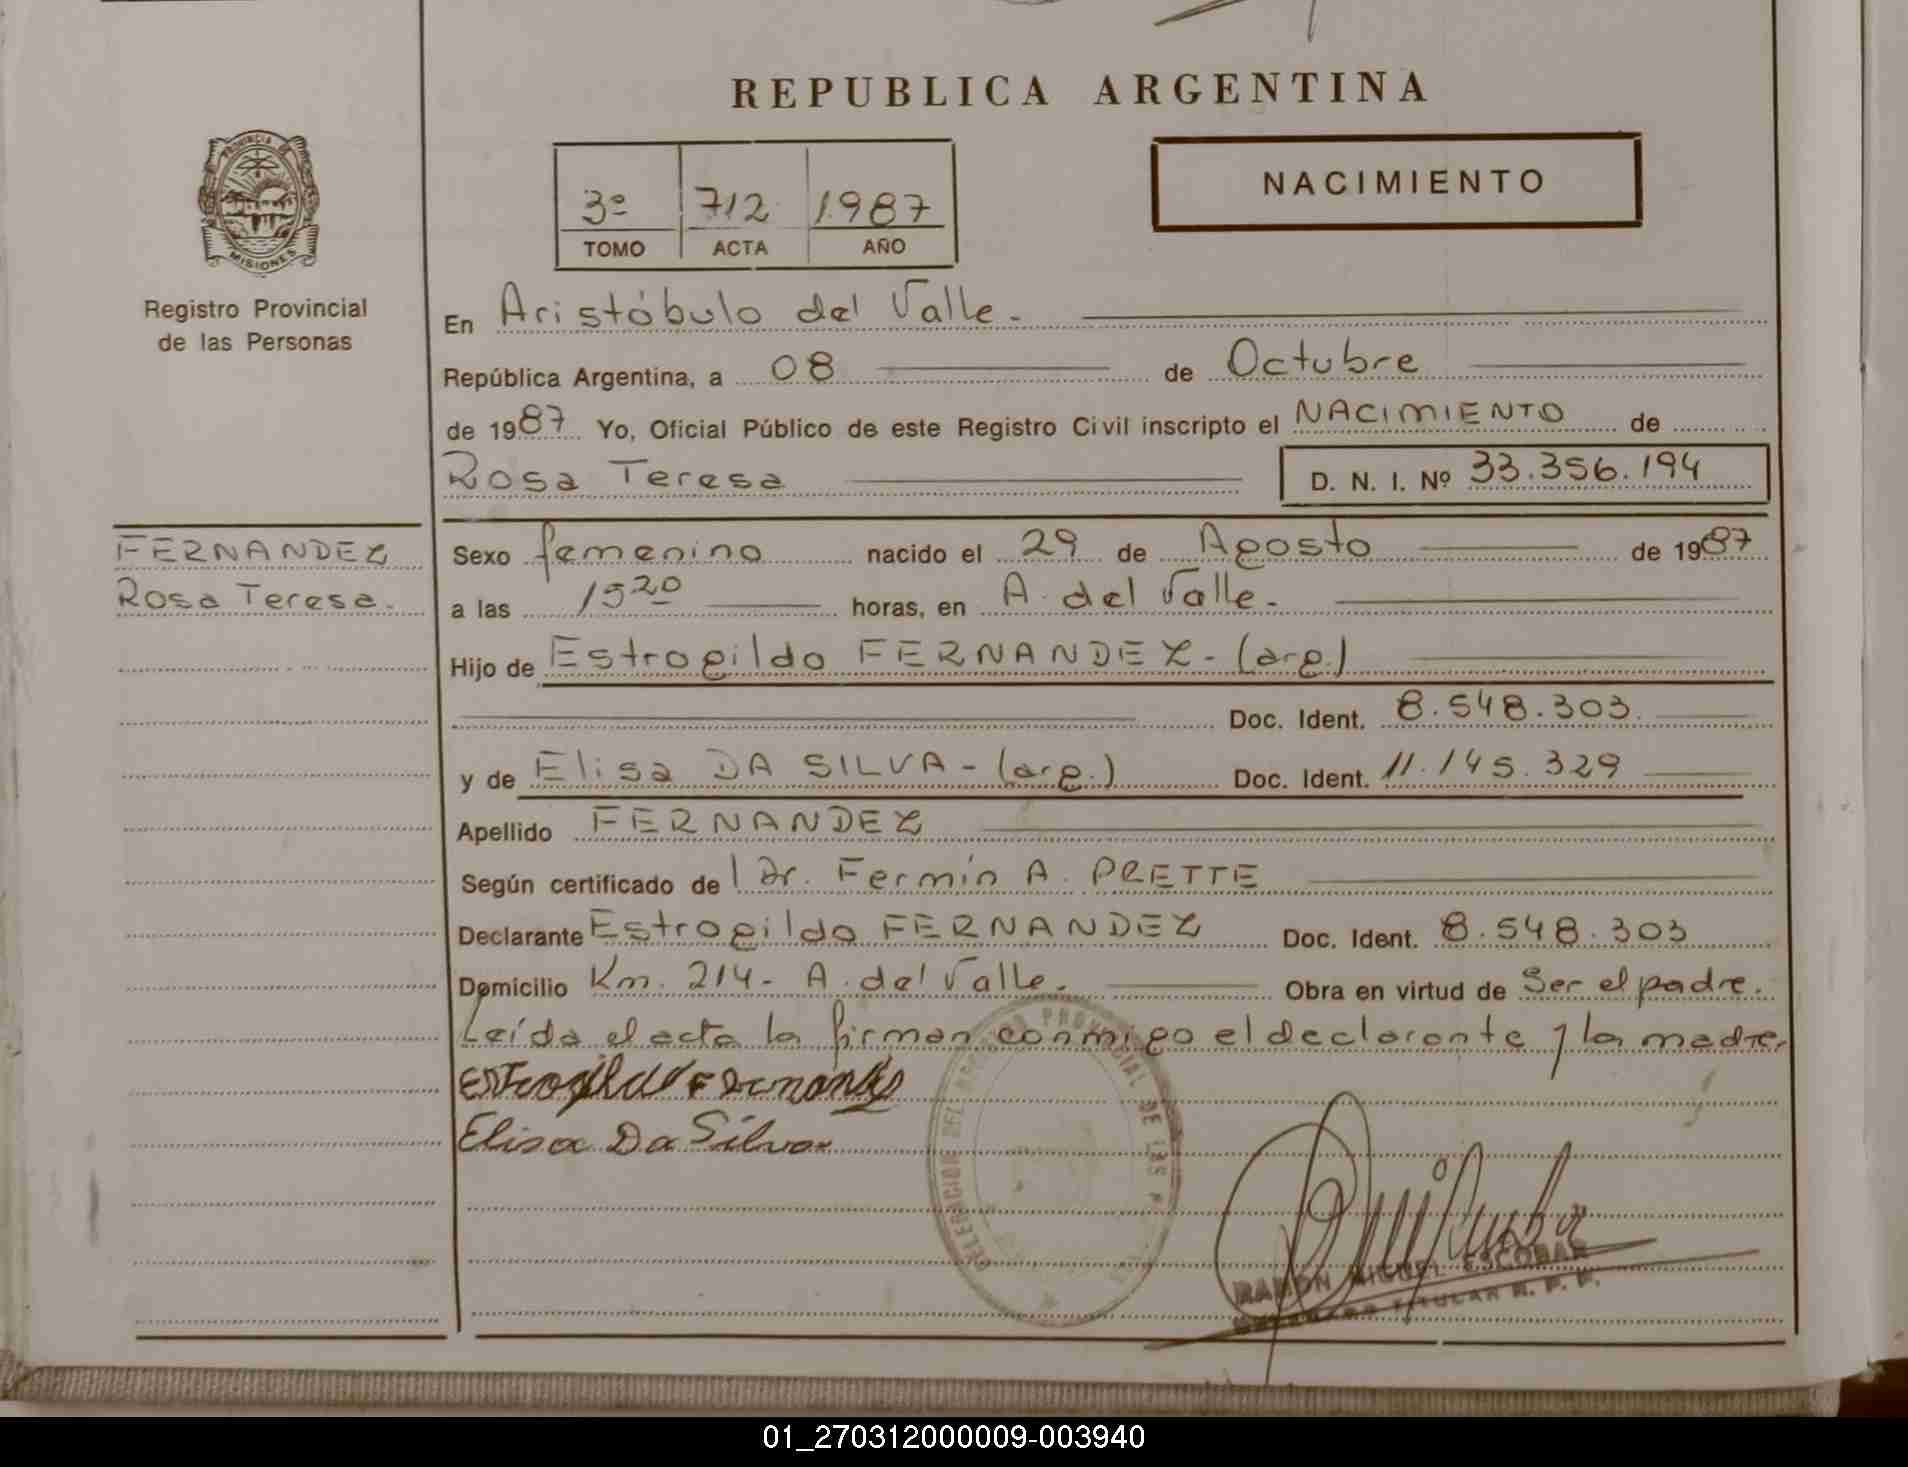 REPUBLICA ARGENTINA
PROVINCIA DE
MISIONES
Registro Provincial
de las Personas
3º 712 1987
TOMO ACTA AÑO
NACIMIENTO
En Aristóbulo del Valle.-
República Argentina, a 08 de Octubre
de 1987 Yo, Oficial Público de este Registro Civil inscripto el NACIMIENTO de
Rosa Teresa D. N. I. Nº 33.356.194
FERNANDEZ
Rosa Teresa.
Sexo femenino nacido el 29 de Agosto de 1987
a las 1520 horas, en A. del Valle.-
Hijo de Estrogildo FERNANDEZ - (arg.)
Doc. Ident. 8.548.303.
y de Elisa DA SILVA - (arg.) Doc. Ident. 11.145.329
Apellido FERNANDEZ
Según certificado de Dr. Fermín A. PRETTE
Declarante Estrogildo FERNANDEZ Doc. Ident. 8.548.303
Domicilio Km. 214- A. del Valle. Obra en virtud de Ser el padre.
Leída el acta la firman conmigo el declarante y la madre.
Estrogildo Fernandes
Elisa Da Silva
DELEGACION DEL REGISTRO PROVINCIAL DE LAS
RAMÓN MIGUEL ESCOBAR
TITULAR R. P. P.
01_270312000009-003940